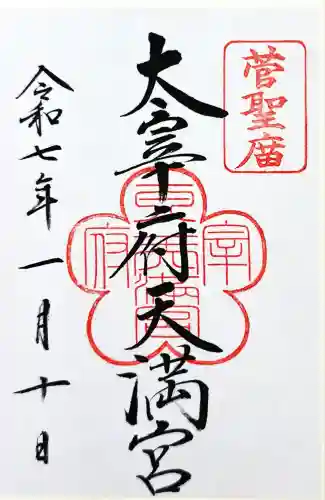 菅聖廟
大宰府天満宮
令和七年一月十日